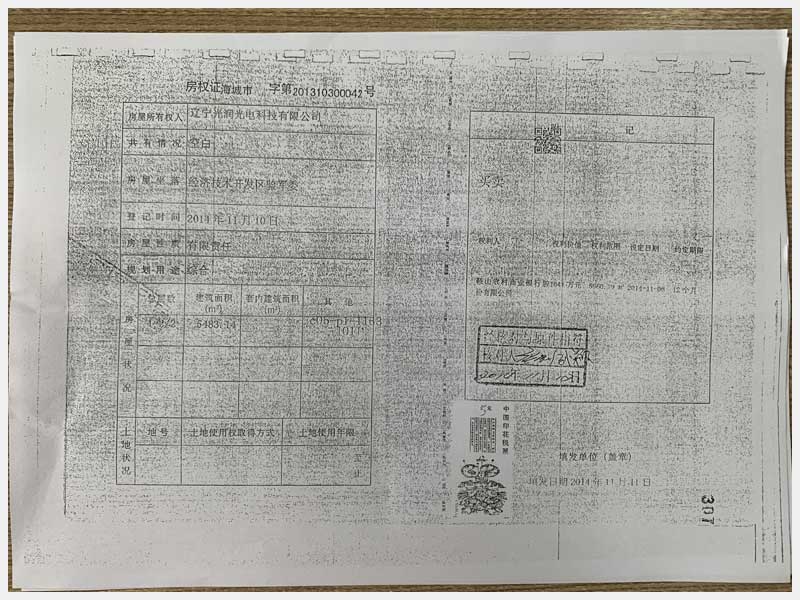 房权证海城市 字第201310300042号
房屋所有权人 辽宁光润光电科技有限公司
共有情况 空白
房屋坐落 经济技术开发区验军委
登记时间 2014年11月10日
房屋性质 有限责任
规划用途 综合
房屋状况
总层数 建筑面积(m²) 套内建筑面积(m²) 其他
5483.14
土地状况
地号 土地使用权取得方式 土地使用年限
至
止
记
买卖
权利人 权利价值 权利范围 设定日期 约定期限
鞍山农村商业银行股 万元 m² 2014-11-06 12个月
份有限公司
核对人
5元
中国印花税票
填发单位（盖章）
填发日期2014年11月11日
307